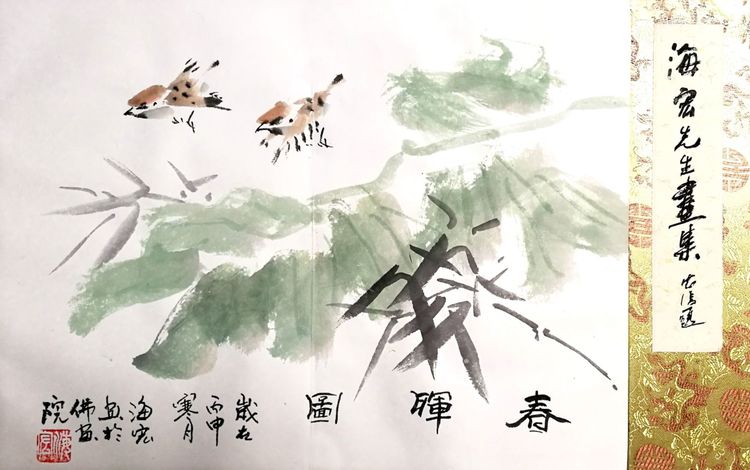 海宏先生畫集
題
春暉圖
歲在
丙申
寒月
海宏
画於
佛画
院